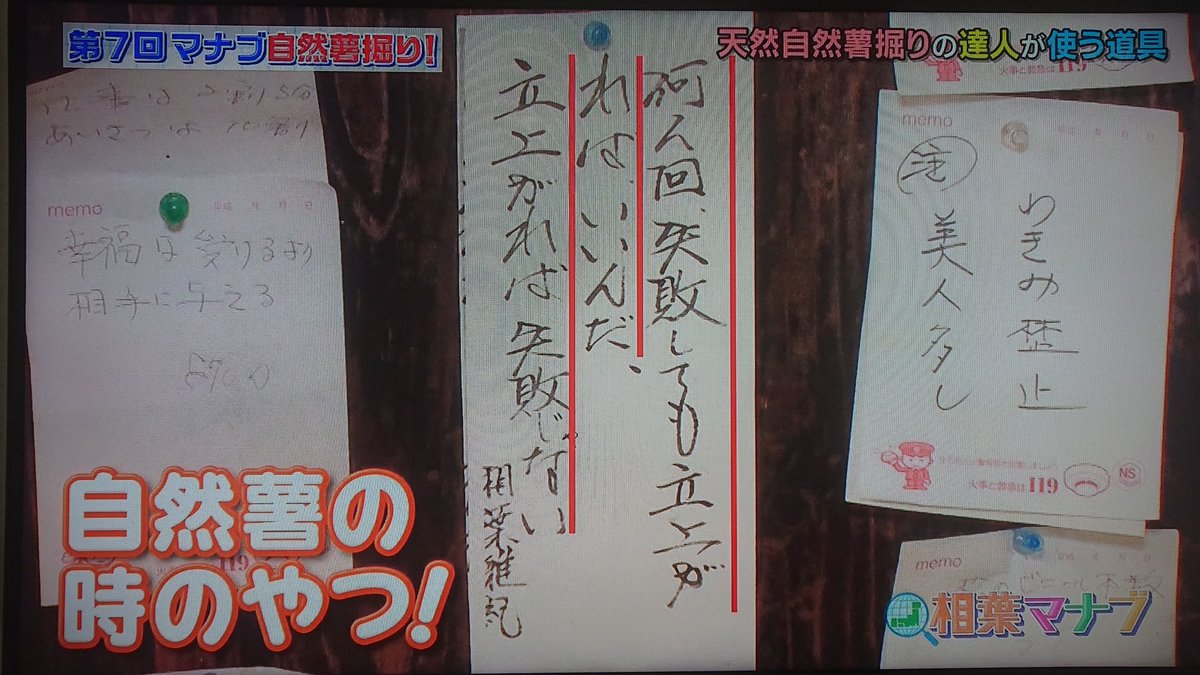 第7回マナブ自然薯掘り!
天然自然薯掘りの達人が使う道具
あいさつは
memo
幸福は受けるより
相手に与える
何ん回、失敗しても立上が
れば、いいんだ、
立上がれば失敗じゃない
相葉雅紀
火事と救急は119
memo 平成 年 月 日
わきみ歪止
注 美人多し
火事と救急は119
NS
memo
自然薯の
時のやつ!
119
相葉マナブ